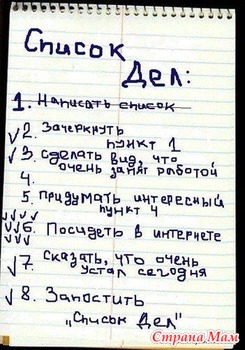 Список
Дел:
1. Написать список
2. Зачеркнуть
пункт 1
3. Сделать вид, что
очень занят работой
4.
5. Придумать интересный
пункт 4
6. Посидеть в интернете
7. Сказать, что очень
устал сегодня
8. Запостить
"Список Дел"
Страна Мам